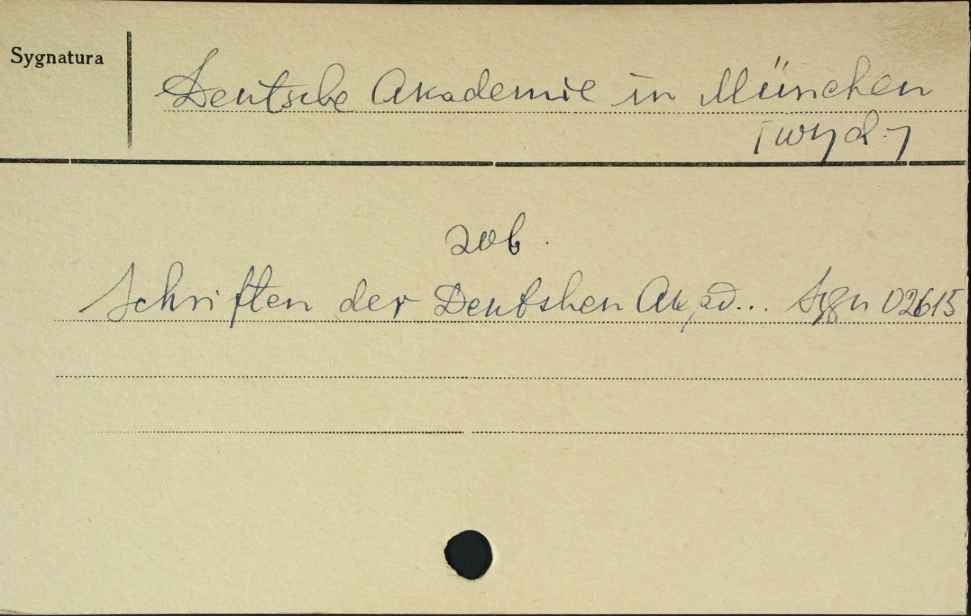 Sygnatura
Deutsche Akademie in München
[wyd.]
zob.
Schriften der Deutshen Akad... Sygn 02615